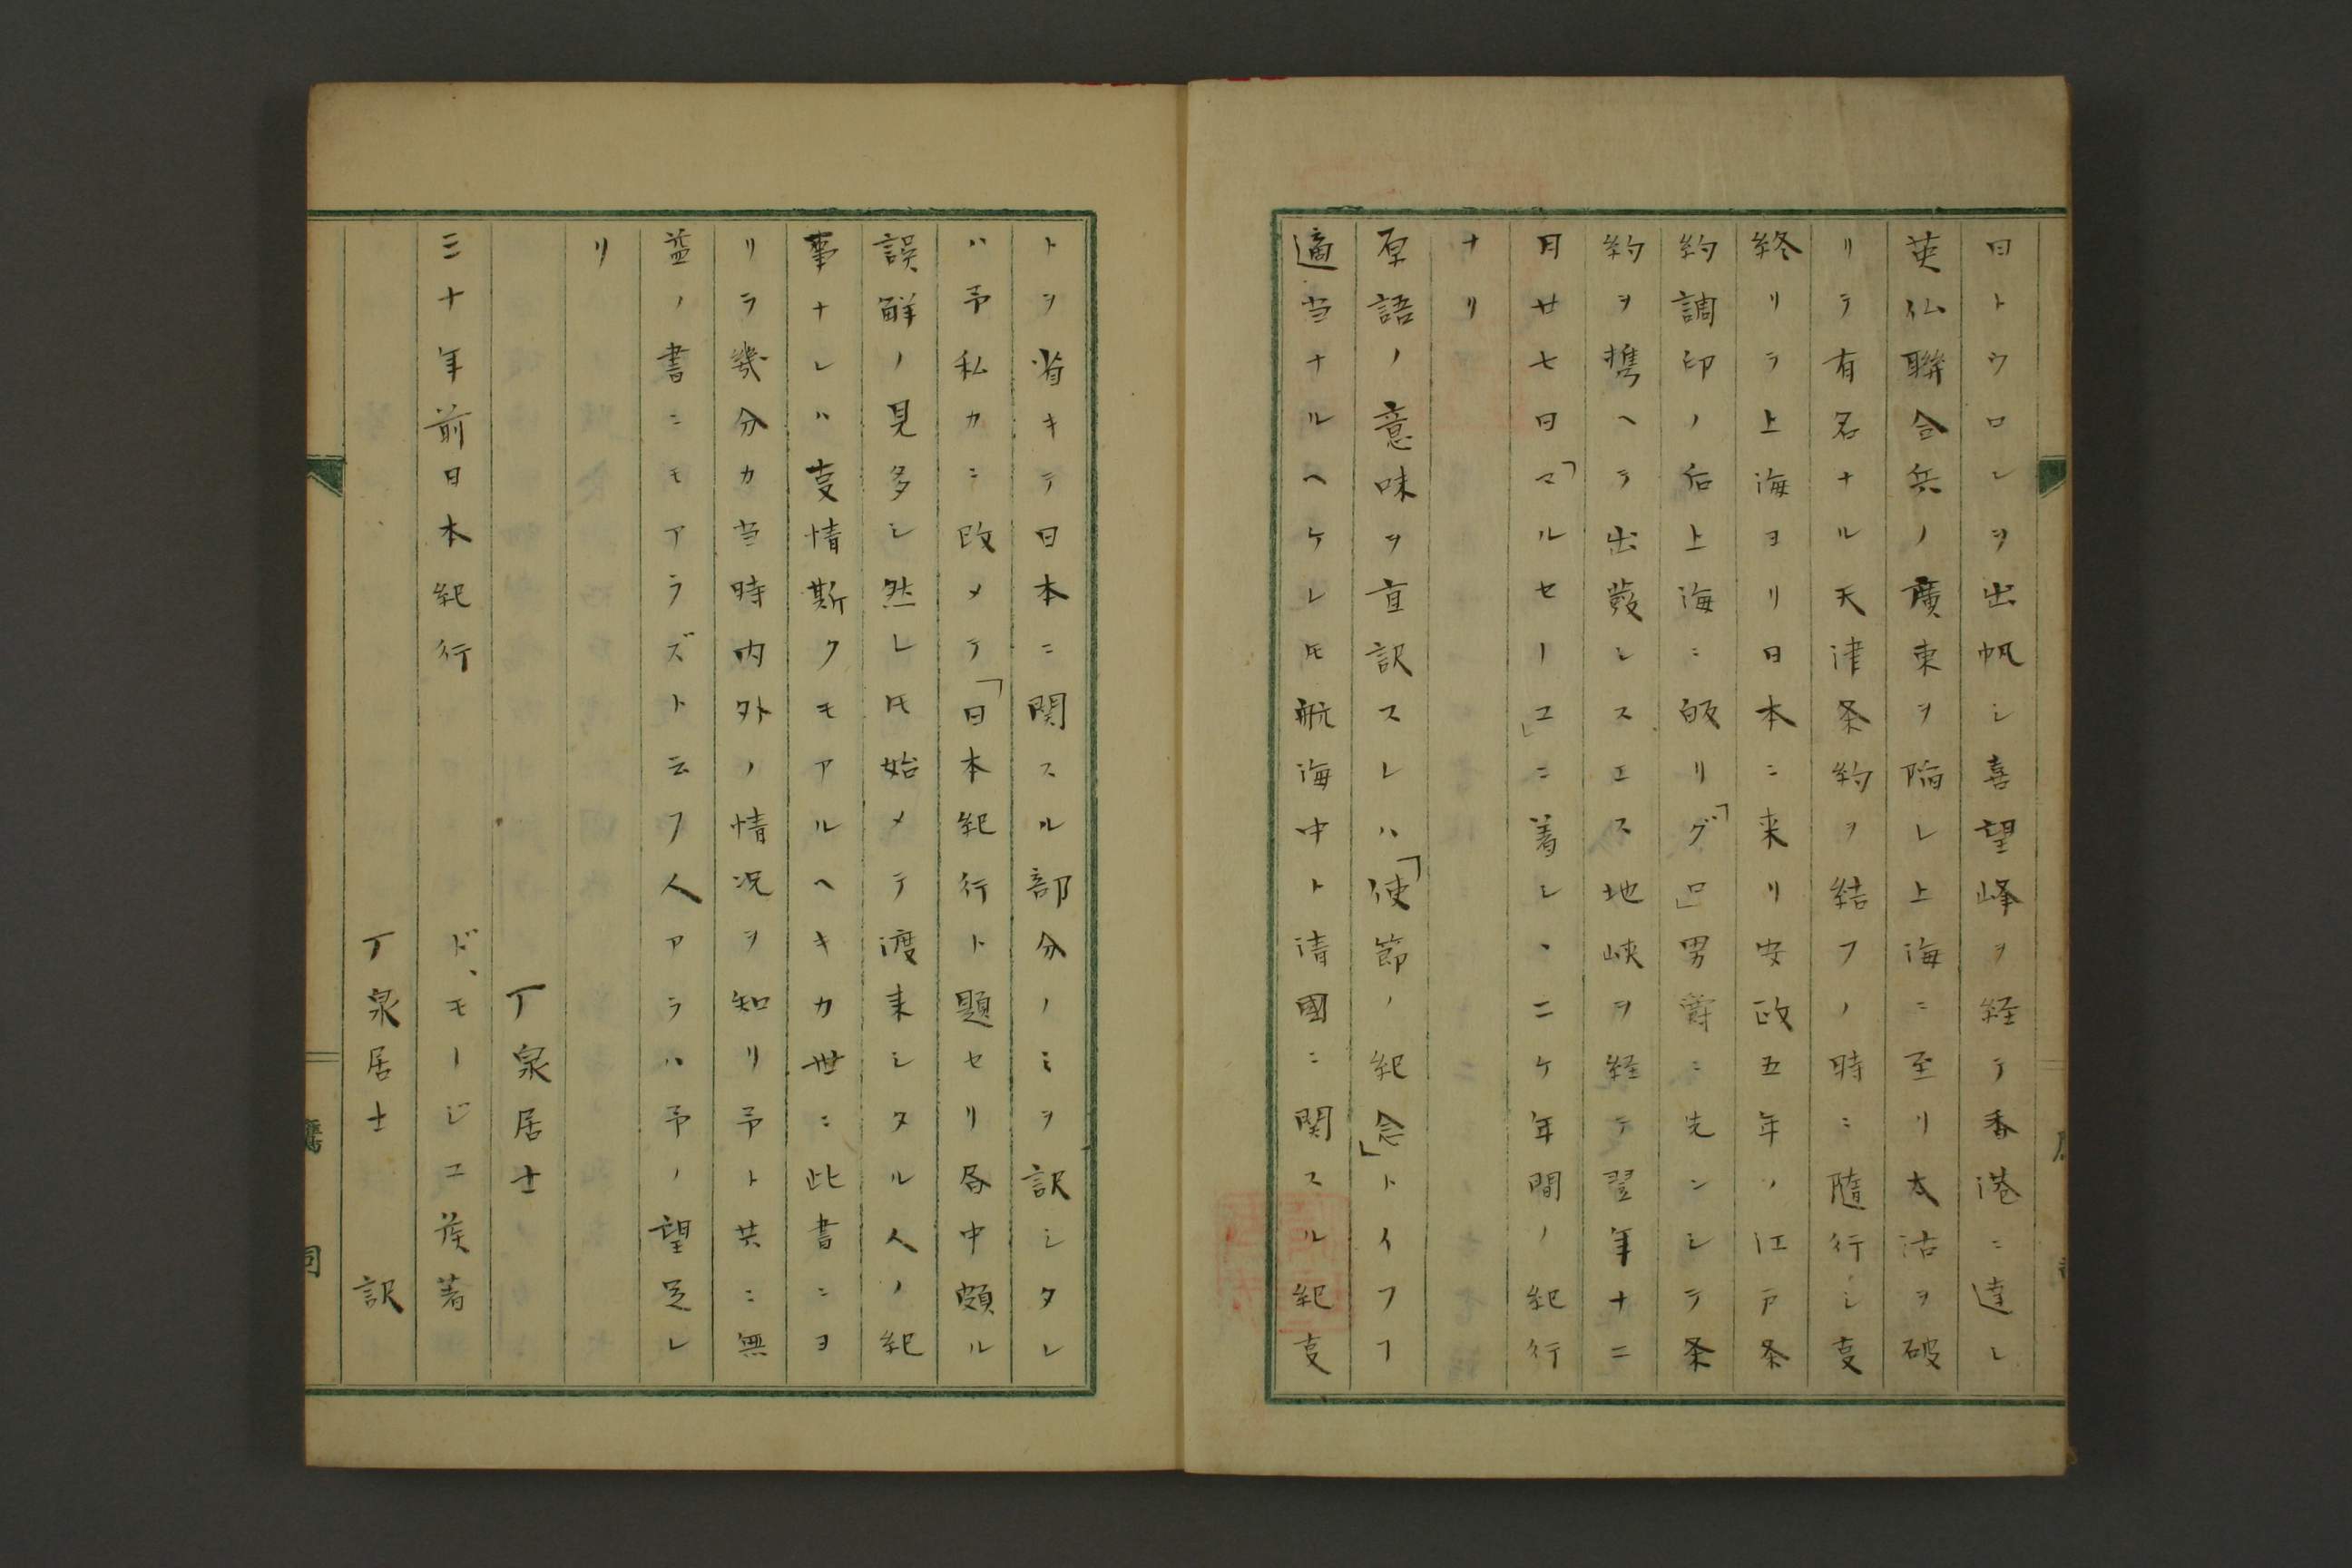 日トウロンヲ出帆シ喜望峰ヲ経テ香港ニ達シ
英仏聯合兵ノ廣東ヲ陥レ上海ニ至リ太沽ヲ破
リテ有名ナル天津条約ヲ結フノ時ニ随行シ事
終リテ上海ヨリ日本ニ来リ安政五年ノ江戸条
約調印ノ后上海ニ皈リ「グロ」男爵ニ先ンシテ条
約ヲ携ヘテ出發シスエス地峡ヲ経テ翌年十二
月廿七日「マルセーユ」ニ着シ、二ケ年間ノ紀行
ナリ
原語ノ意味ヲ直訳スレハ「使節ノ紀念」トイフフ
適当ナルヘケレ𪜈航海中ト清國ニ関スル紀事
トヲ省キテ日本ニ関スル部分ノミヲ訳シタレ
ハ予私カニ改メテ「日本紀行ト題セリ各中頗ル
誤解ノ見多シ然レ𪜈始メテ渡来シタル人ノ紀
事ナレハ事情斯クモアルヘキカ世ニ此書ニヨ
リテ幾分カ当時内外ノ情况ヲ知リ予ト共ニ無
益ノ書ニモアラズト云フ人アラハ予ノ望足レ
リ
丁泉居士
三十年前日本紀行 ド、モージユ侯著
丁泉居士 訳